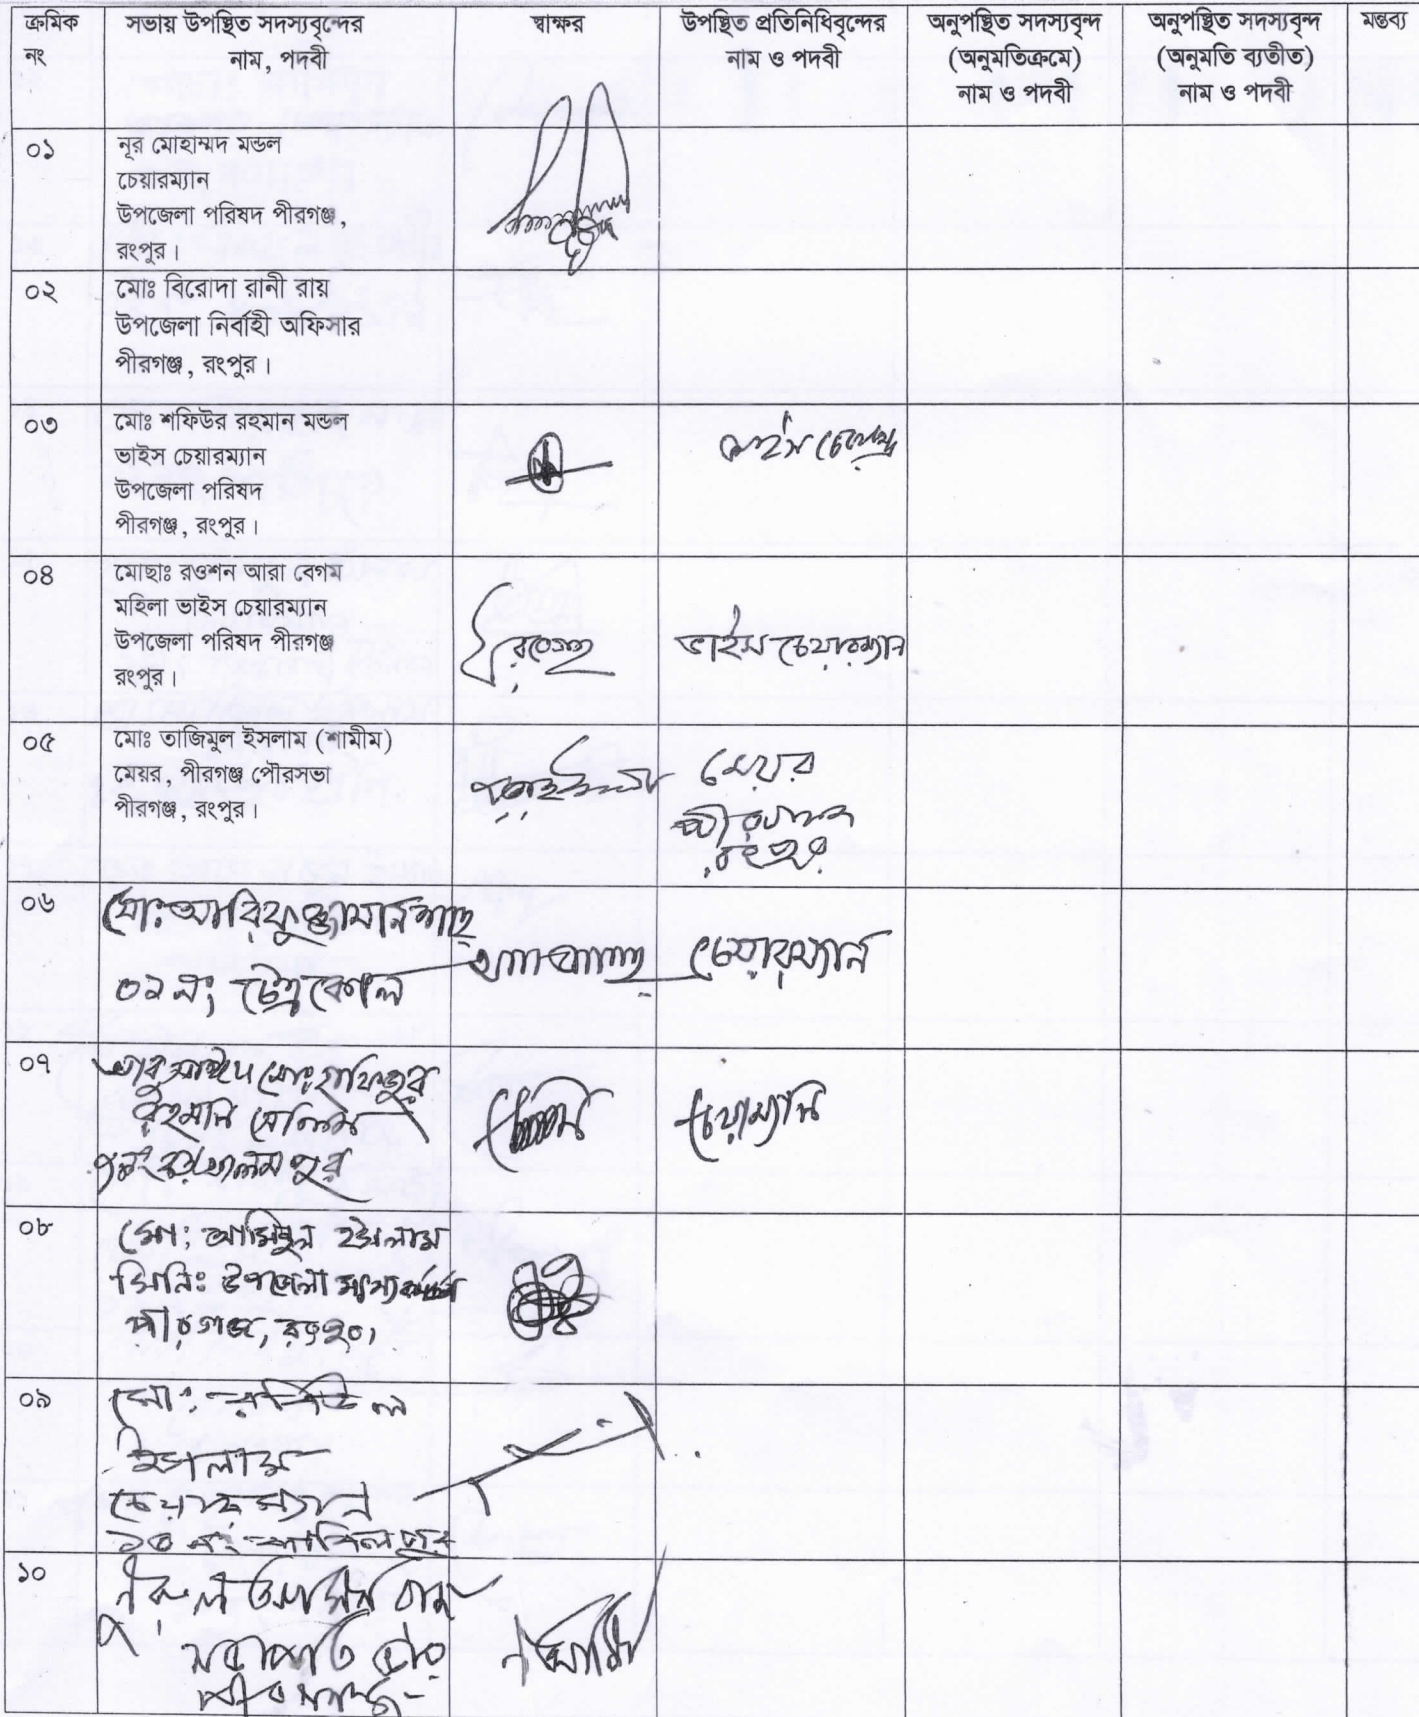 ক্রমিক নং
সভায় উপস্থিত সদস্যবৃন্দের নাম, পদবী
স্বাক্ষর
উপস্থিত প্রতিনিধিবৃন্দের নাম ও পদবী
অনুপস্থিত সদস্যবৃন্দ (অনুমতিক্রমে) নাম ও পদবী
অনুপস্থিত সদস্যবৃন্দ (অনুমতি ব্যতীত) নাম ও পদবী
মন্তব্য
০১
নূর মোহাম্মদ মন্ডল
চেয়ারম্যান
উপজেলা পরিষদ পীরগঞ্জ,
রংপুর।
০২
মোঃ বিরোদা রানী রায়
উপজেলা নির্বাহী অফিসার
পীরগঞ্জ, রংপুর।
০৩
মোঃ শফিউর রহমান মন্ডল
ভাইস চেয়ারম্যান
উপজেলা পরিষদ
পীরগঞ্জ, রংপুর।
ভাইস
০৪
মোছাঃ রওশন আরা বেগম
মহিলা ভাইস চেয়ারম্যান
উপজেলা পরিষদ পীরগঞ্জ
রংপুর।
ভাইস চেয়ারম্যান
০৫
মোঃ তাজিমুল ইসলাম (শামীম)
মেয়র, পীরগঞ্জ পৌরসভা
পীরগঞ্জ, রংপুর।
মেয়র
পীরগঞ্জ
রংপুর
০৬
মোঃ আরিফুজ্জামান শাহ্
০১ নং চৈত্রকোল
চেয়ারম্যান
০৭
আবু সাঈদ মোঃ হাফিজুর
রহমান সেলিম
চেয়াম্যান
০৮
মোঃ আমিনুল ইসলাম
সিনিঃ উপজেলা মৎস্য
পীরগঞ্জ, রংপুর।
০৯
মোঃ
ইসলাম
চেয়ারম্যান
১০
নূরুল আমিন